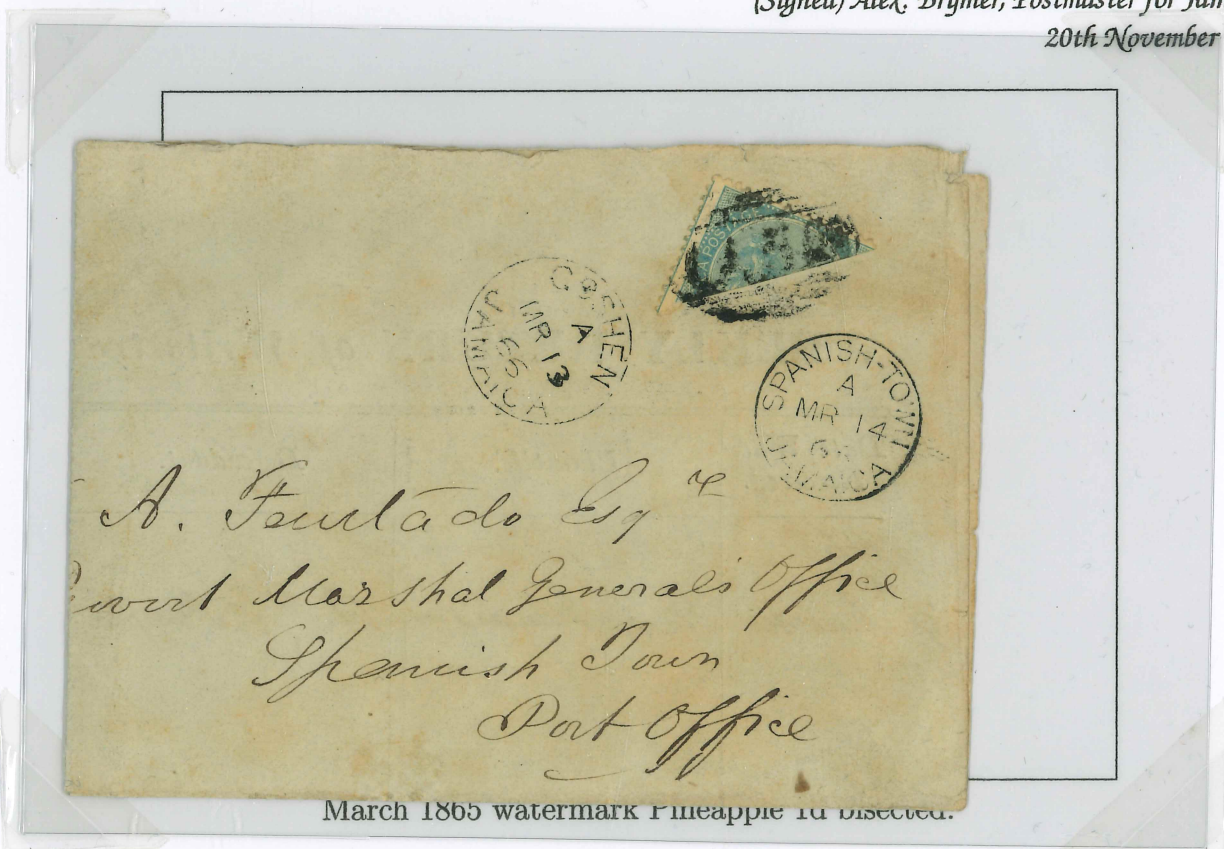 (Signed) Alex. Brymer, Postmaster for Jam
20th November
A POST
GOSHEN
A
MR 13
65
JAMAICA
SPANISH-TOWN
A
MR 14
65
JAMAICA
A. Feurtado Esqre
Marshal General's Office
Spanish Town
Port Office
March 1865 watermark Pineapple 1d bisected.